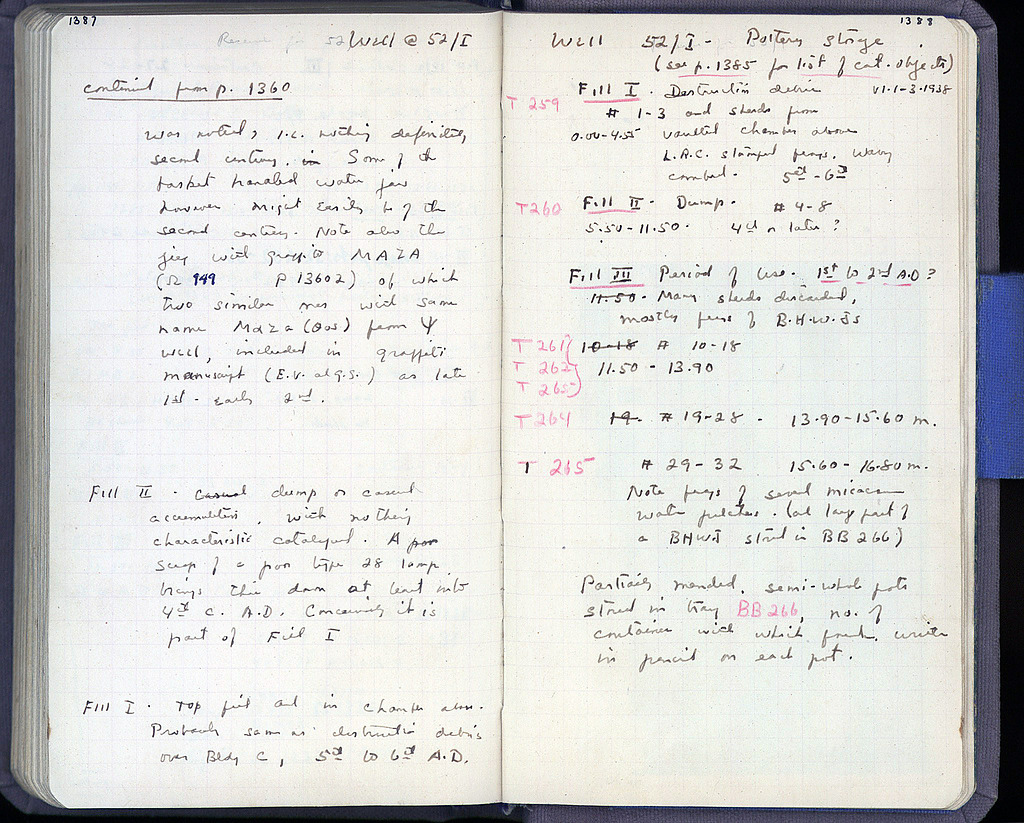 1387
Well @ 52/I
continued from p. 1360
was noted, i.e. nothing definitely
second century. in Some of the
basket handled water jars
however might easily be of the
second century. Note also the
jug with graffito MAZA
(Ω 949 P 13602) of which
two similar ones with same
name Maza (θος) from Ψ
well, included in graffiti
manuscript (E.V. at g.s.) as late
1st - early 2nd.
Fill II - casual dump or casual
accumulation, with nothing
characteristic catalogued. A poor
scrap of a poor type 28 lamp
brings this down at least into
4th C. A.D. Conceivably it is
part of Fill I
Fill I - Top fill and in chamber above.
Probably same as destruction debris
over Bldg C, 5th to 6th A.D.
1388
Well 52/I - Pottery storage
(see p. 1385 for list of cat. objects)
T 259 Fill I. Destruction debris VI-1-3-1938
# 1-3 and sherds from
0.00-4.55 vaulted chamber above
L.R.C. stamped frags. wavy
combed. 5th-6th
T 260 Fill II - Dump. # 4-8
5.50-11.50. 4th or later?
Fill III Period of use. 1st to 2nd A.D?
11.50. Many sherds discarded,
mostly frags of B.H.W.Js
T 261 10-18 # 10-18
T 262 11.50 - 13.90
T 263
T 264 19. # 19-28 - 13.90-15.60 m.
T 265 # 29-32 15.60-16.80 m.
Note frags of several micaceous
water pitchers. (and large part of
a BHWJ stored in BB 266)
Partially mended, semi-whole pots
stored in tray BB 266, no. of
container with which found, written
in pencil on each pot.